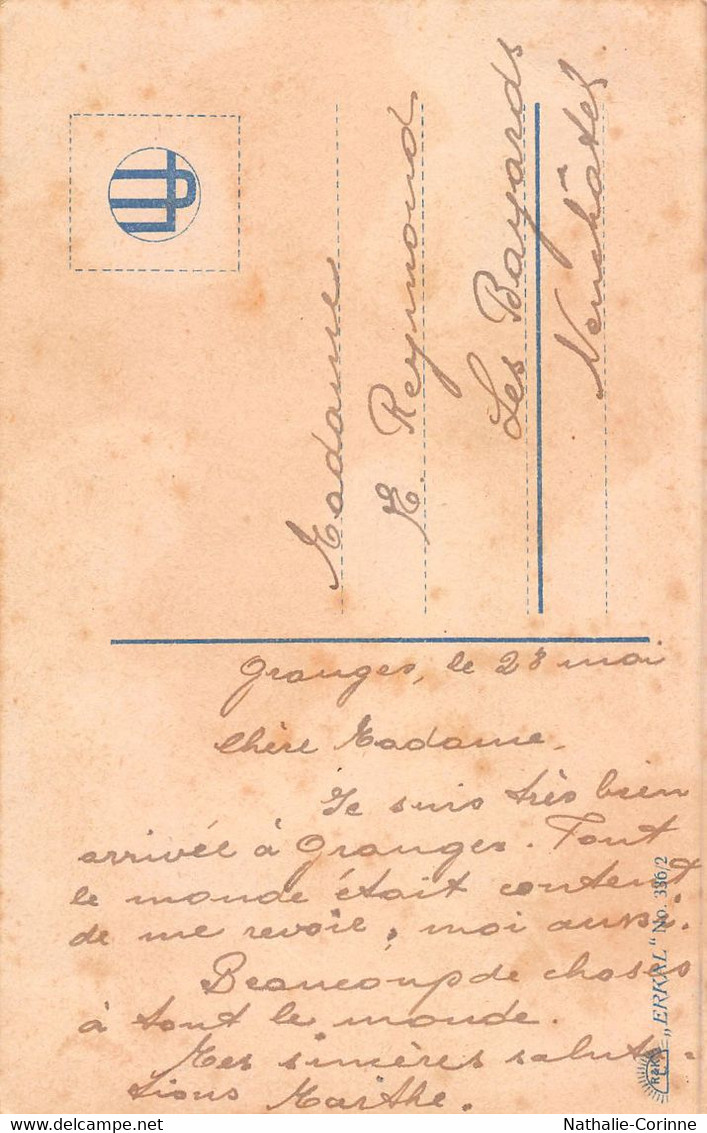 Madame
E. Reymond
Les Bayards
Neuchâtel
Granges, le 28 mai
Chère Madame.
Je suis très bien
arrivée à Granges. Tout
le monde était content
de me revoir, moi aussi.
Beaucoup de choses
à tout le monde.
Mes sincères saluta-
tions Marthe.
R&K
„ERKAL" No. 336/2
Nathalie-Corinne